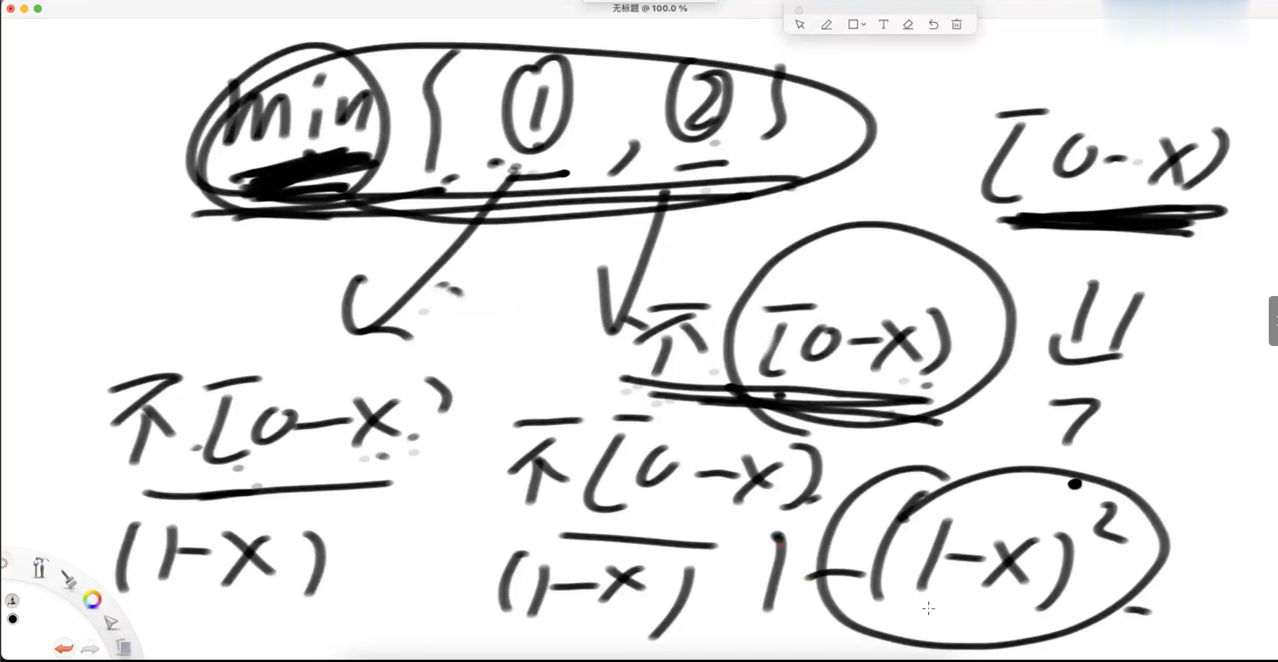 无标题 @ 100.0 %
T
min { ① , ② }
[0-x)
不 [0-x)
不 [0-x)
不 [0-x)
(1-x)
(1-x)
1-(1-x)²